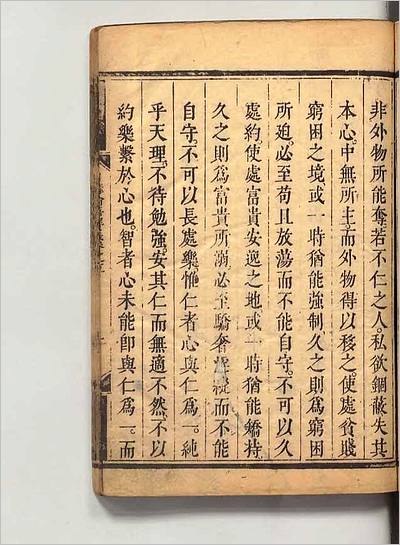 非外物所能奪若不仁之人私欲錮蔽失其
本心中無所主而外物得以移之使處貧賤
窮困之境或一時猶能強制久之則爲窮困
所廹必至苟且放蕩而不能自守不可以久
處約使處富貴安逸之地或一時猶能矯持
久之則爲富貴所溺必至驕奢而不能
自守不可以長處樂惟仁者心與仁爲一純
乎天理不待勉強安其仁而無適不然不以
約樂繫於心也智者心未能卽與仁爲一而